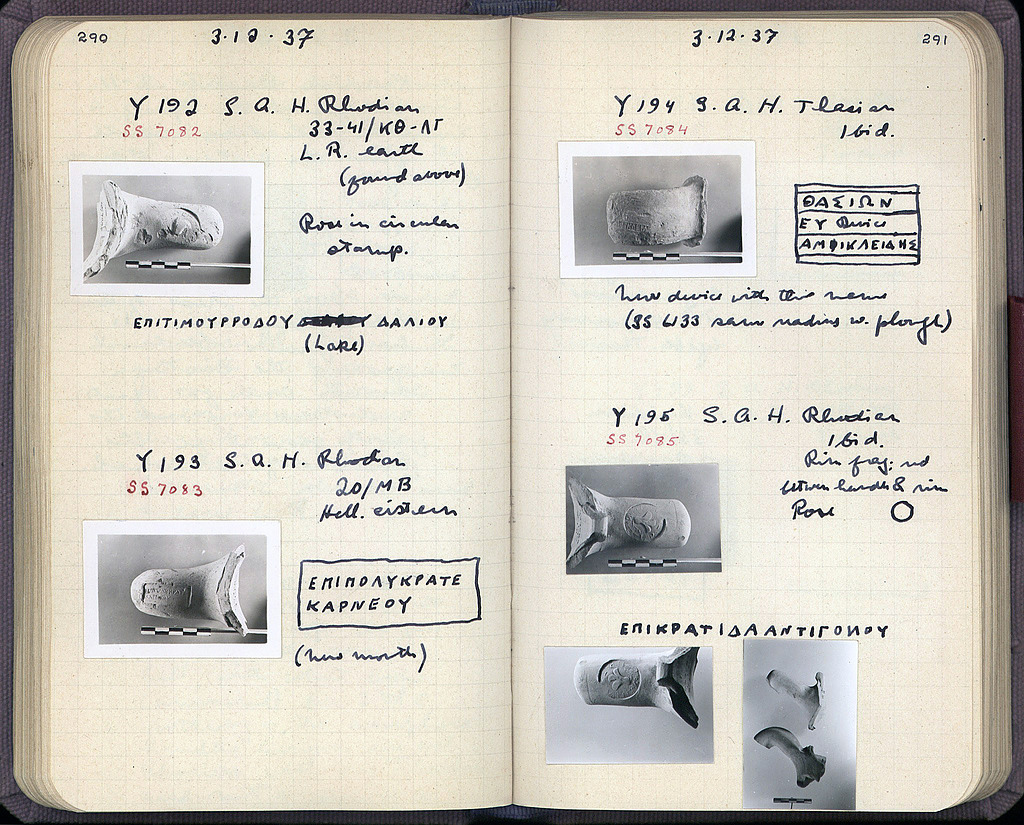 290
3·12·37
Y 192 S. A. H. Rhodian
SS 7082
33-41/ΚΘ-ΛΓ
L. R. earth
(found above)
Rose in circular
stamp.
ΕΠΙΤΙΜΟΥΡΡΟΔΟΥ ΔΑΛΙΟΥ
(Late)
Y 193 S. A. H. Rhodian
SS 7083
20/ΜΒ
Hell. cistern
ΕΠΙΠΟΛΥΚΡΑΤΕ
ΚΑΡΝΕΟΥ
(new month)
3·12·37
291
Y 194 S. A. H. Thasian
SS 7084
Ibid.
ΘΑΣΙΩΝ
ΕΥ Device
ΑΜΦΙΚΛΕΙΔΗΣ
new device with this name
(SS 6133 same w. plough)
Y 195 S. A. H. Rhodian
SS 7085
Ibid.
Rim frag;
between handle & rim
Rose
ΕΠΙΚΡΑΤΙΔΑΑΝΤΙΓΟΝΟΥ